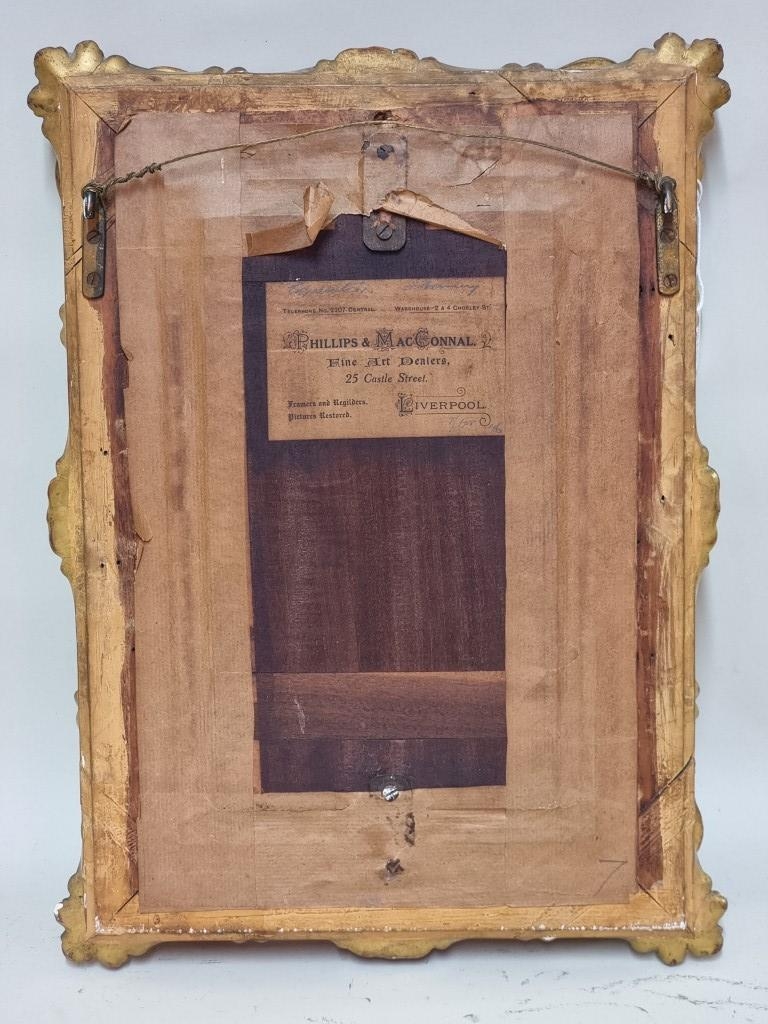 Telephone No. 2207 Central. Warehouse-2 & 4 Chorley St.
Phillips & MacConnal.
Fine Art Dealers,
25 Castle Street.
Framers and Regilders.
Pictures Restored.
Liverpool
7